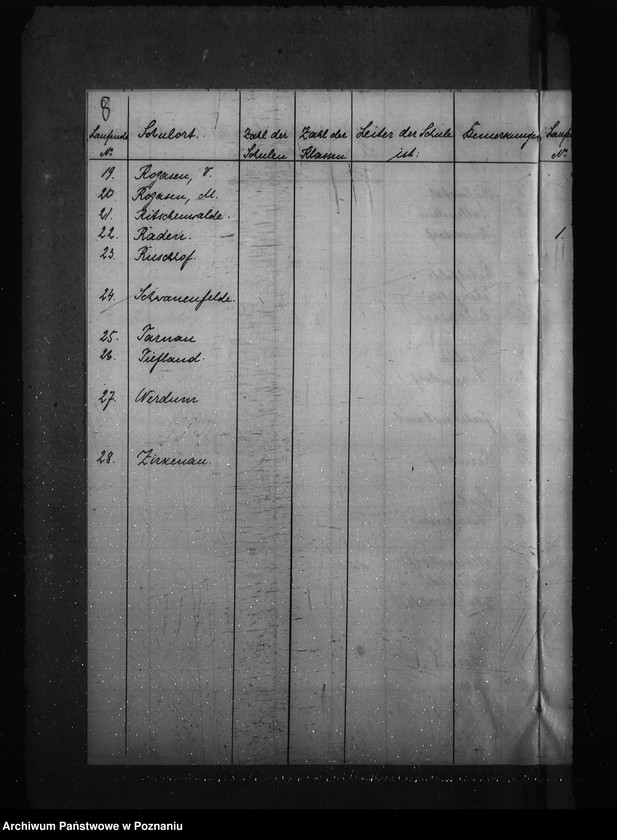 8
Laufende Schulort. Zahl der Zahl der Leiter der Schule Bemerkungen Laufe
No. Schulen Klassen ist: No.
19. Rogasen, V.
20. Rogasen, M.
21. Ritschenwalde.
22. Raden.
23. Ruschhof.
1.
24. Schwanenfelde.
25. Tarnau
26. Tiefland.
27. Werdum
28. Zirkenau.
Archiwum Państwowe w Poznaniu